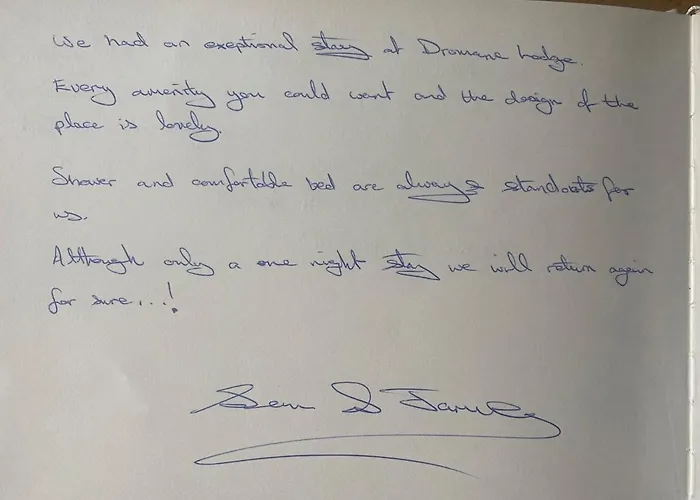 We had an exeptional stay at Dromane Lodge.
Every amenity you could want and the design of the
place is lovely.
Shower and comfortable bed are always standouts for
us.
Although only a one night stay we will return again
for sure...!
Sean & Family